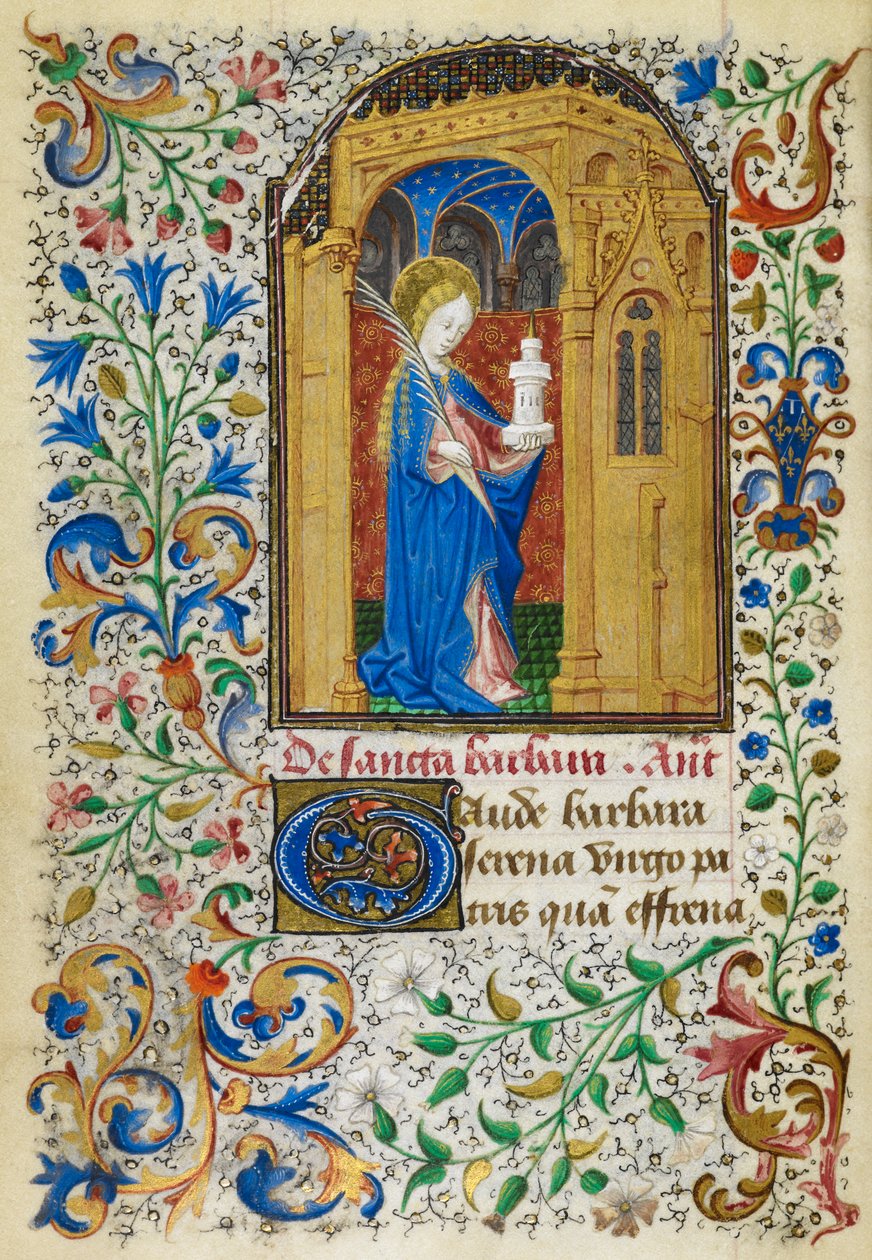 De sancta barbara . Añt
Gaude barbara
serena virgo pa
tris quā effrena